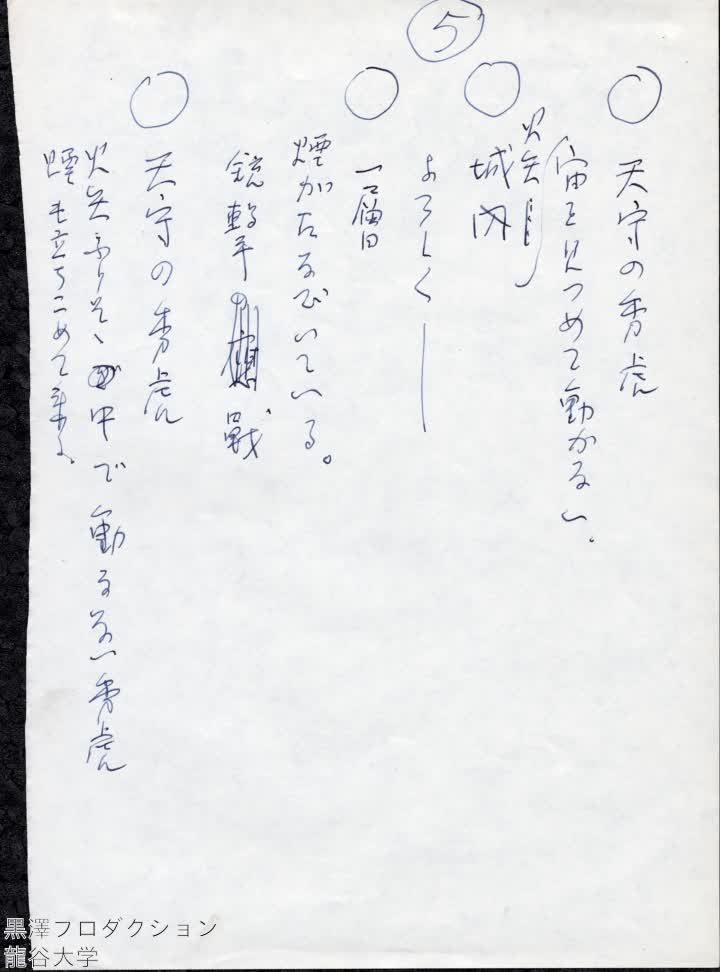 ⑤
○ 天守の秀虎
宙を見つめて動かない。
火矢
○ 城内
よろしく――
○ 一層
煙がたなびいている。
銃撃 應戰
○ 天守の秀虎
火矢ふりそゝぐ中で動かない秀虎
煙も立ちこめて来る。
黒澤プロダクション
龍谷大学